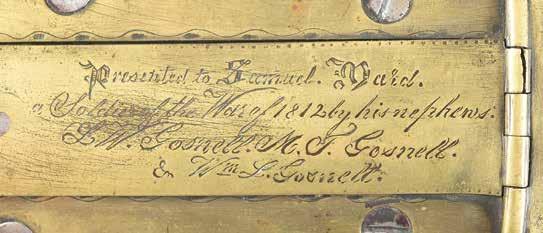 Presented to Samuel. Ward.
a Soldier of the War of 1812 by his nephews.
L. W. Gosnell. M. T. Gosnell.
& Wm L. Gosnell.